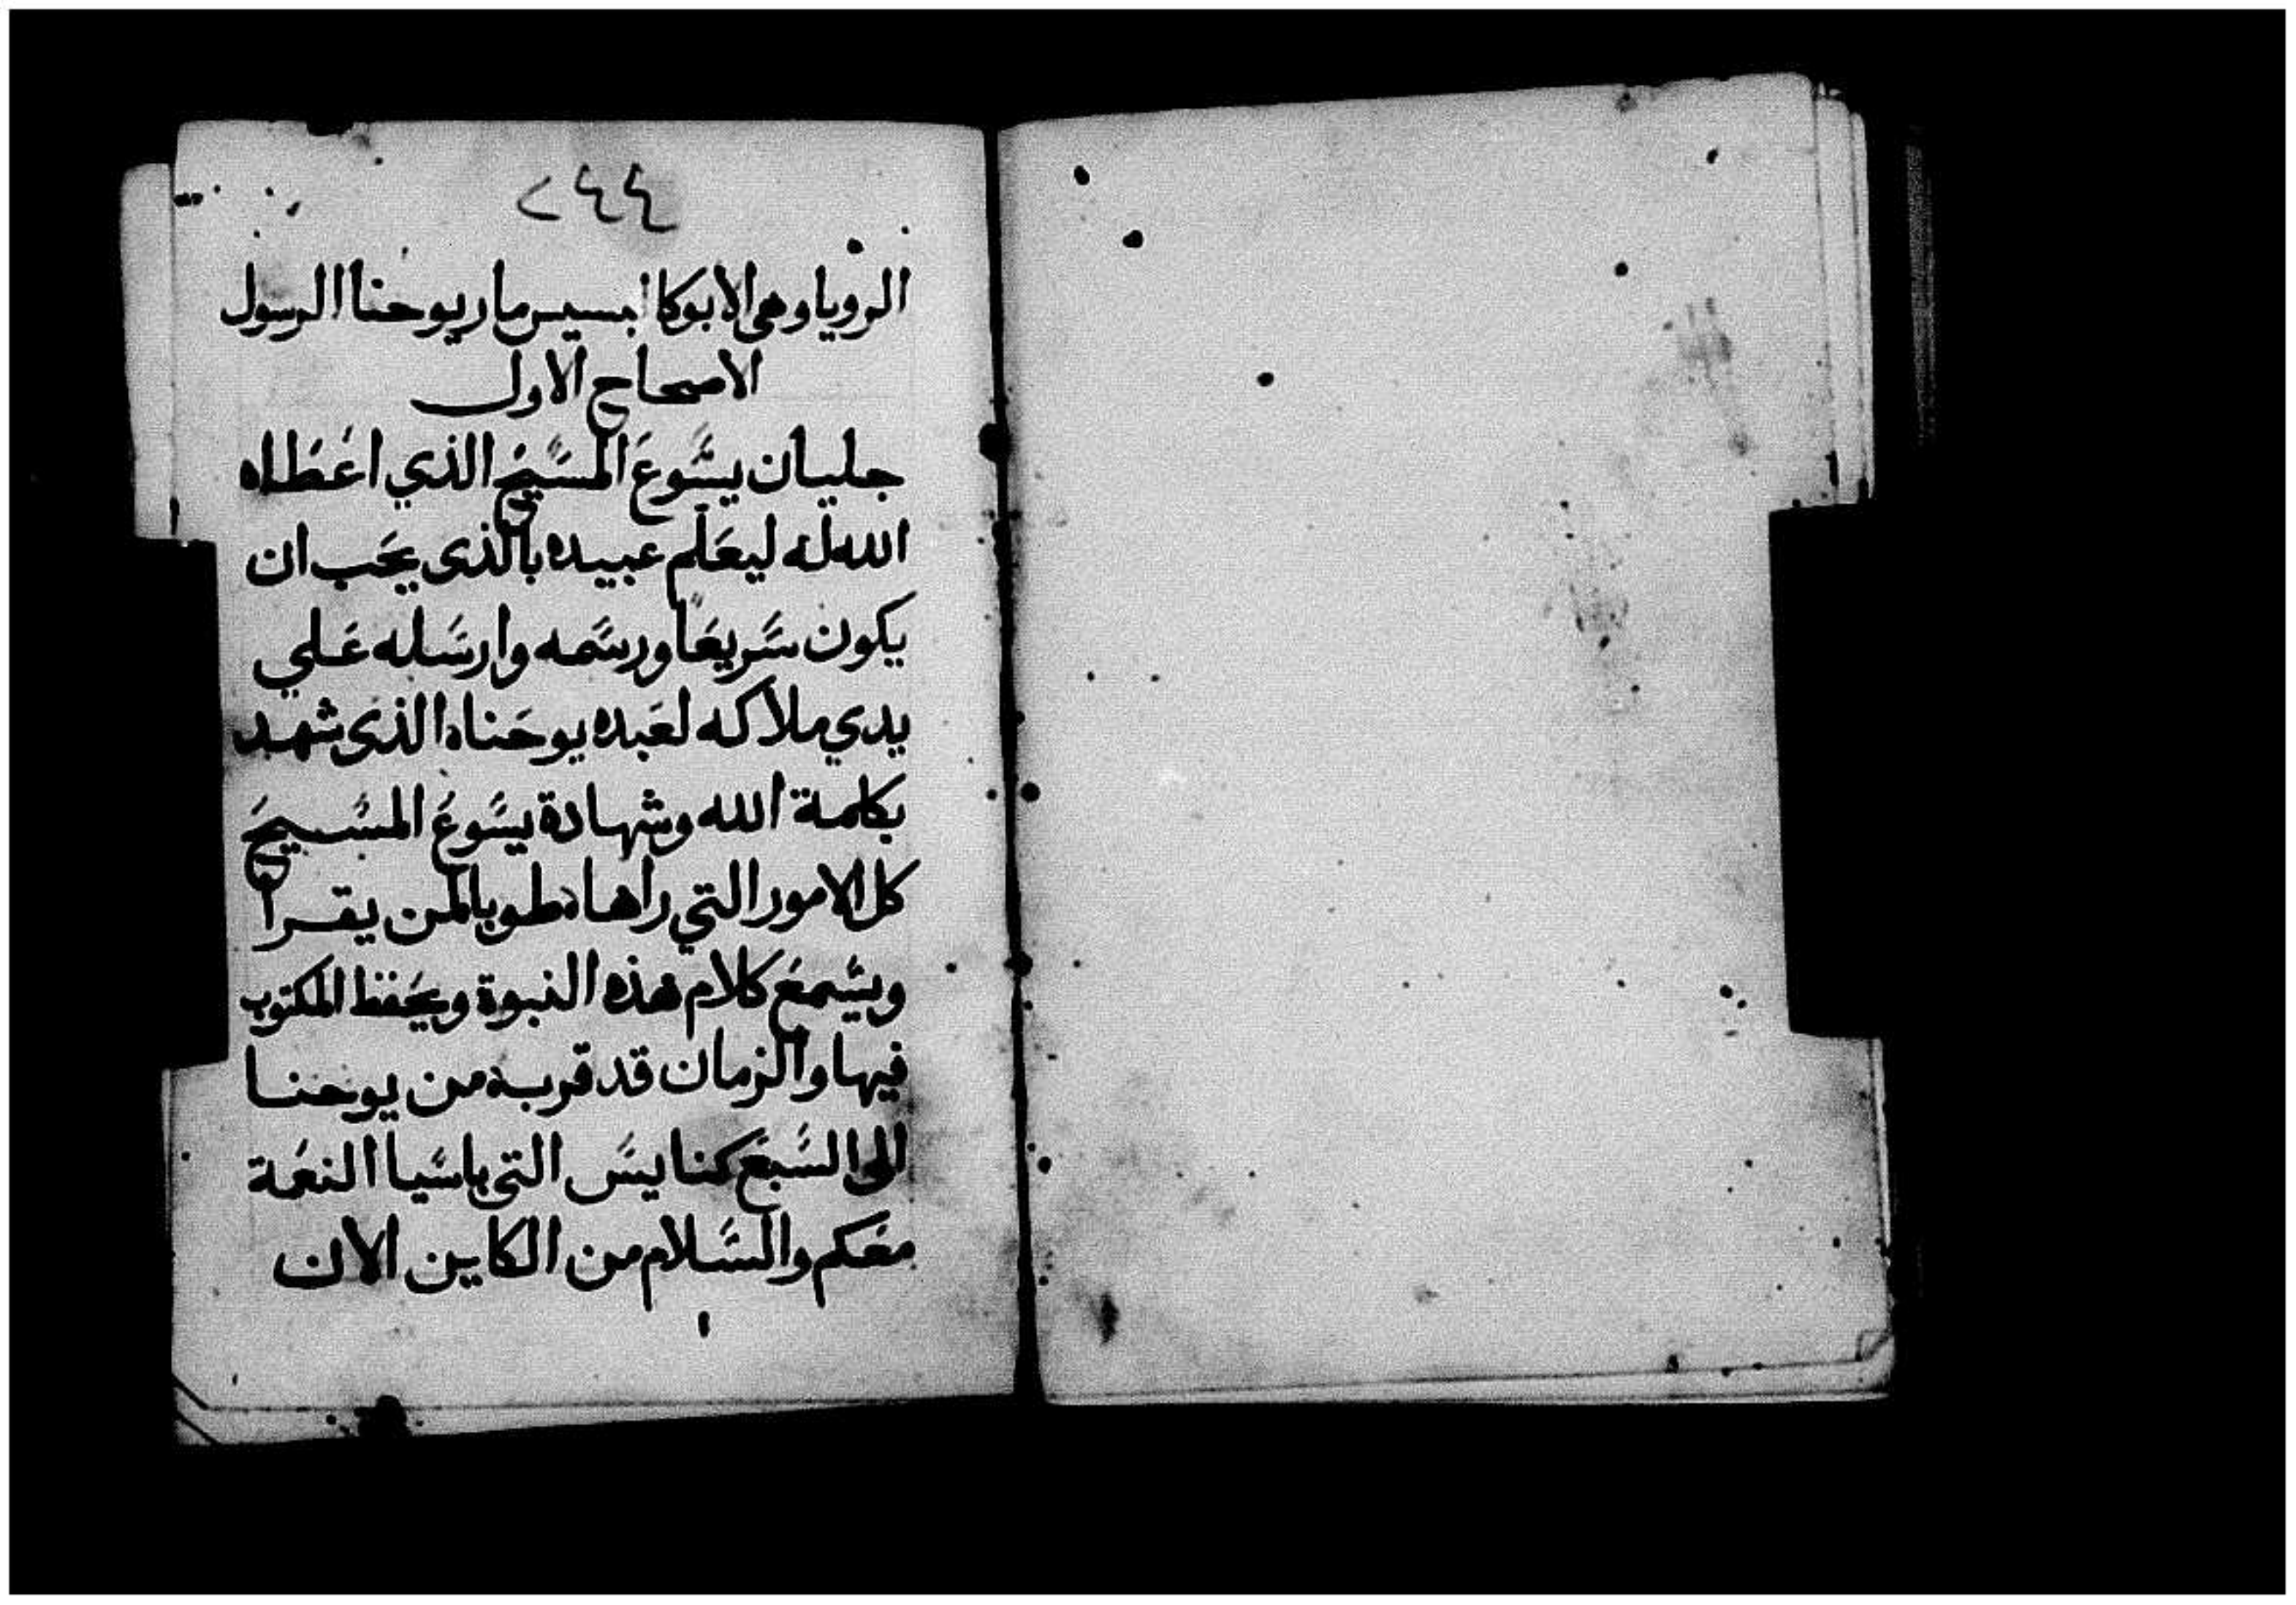 ٢٤٤
الرويا وهى الابوكالبسيس مار يوحنا الرسول
الاصحاح الاول
جليان يسَوعَ المسَيحَ الذي اعَطاه
الله له ليعَلم عبيده بالذى يحَب ان
يكون سَريعَاً ورسَمه وارسَله عَلي
يدي ملاكه لعَبده يوحَناه الذى شهد
بكلمة الله وشهادة يسَوعَ المسَيحَ
كل الامور التي راها ه طوبا لمن يقرا
ويسَمعَ كلام هذه النبوة ويحَفظ المكتوب
فيها والزمان قد قرب ه من يوحنا
الى السَبعَ كنايسَ التى باسَيا النعَمة
معَكم والسَلام من الكاين الان
١